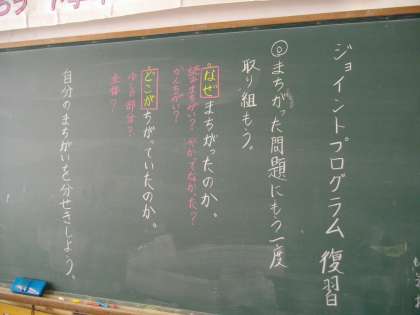 ジョイントプログラム 復習
◎まちがった問題にもう一度
取り組もう。
なぜまちがったのか。
読みまちがい？やってなかった？
かんちがい？
どこがちがっていたのか。
小さな部分？
全体？
自分のまちがいを分せきしよう。